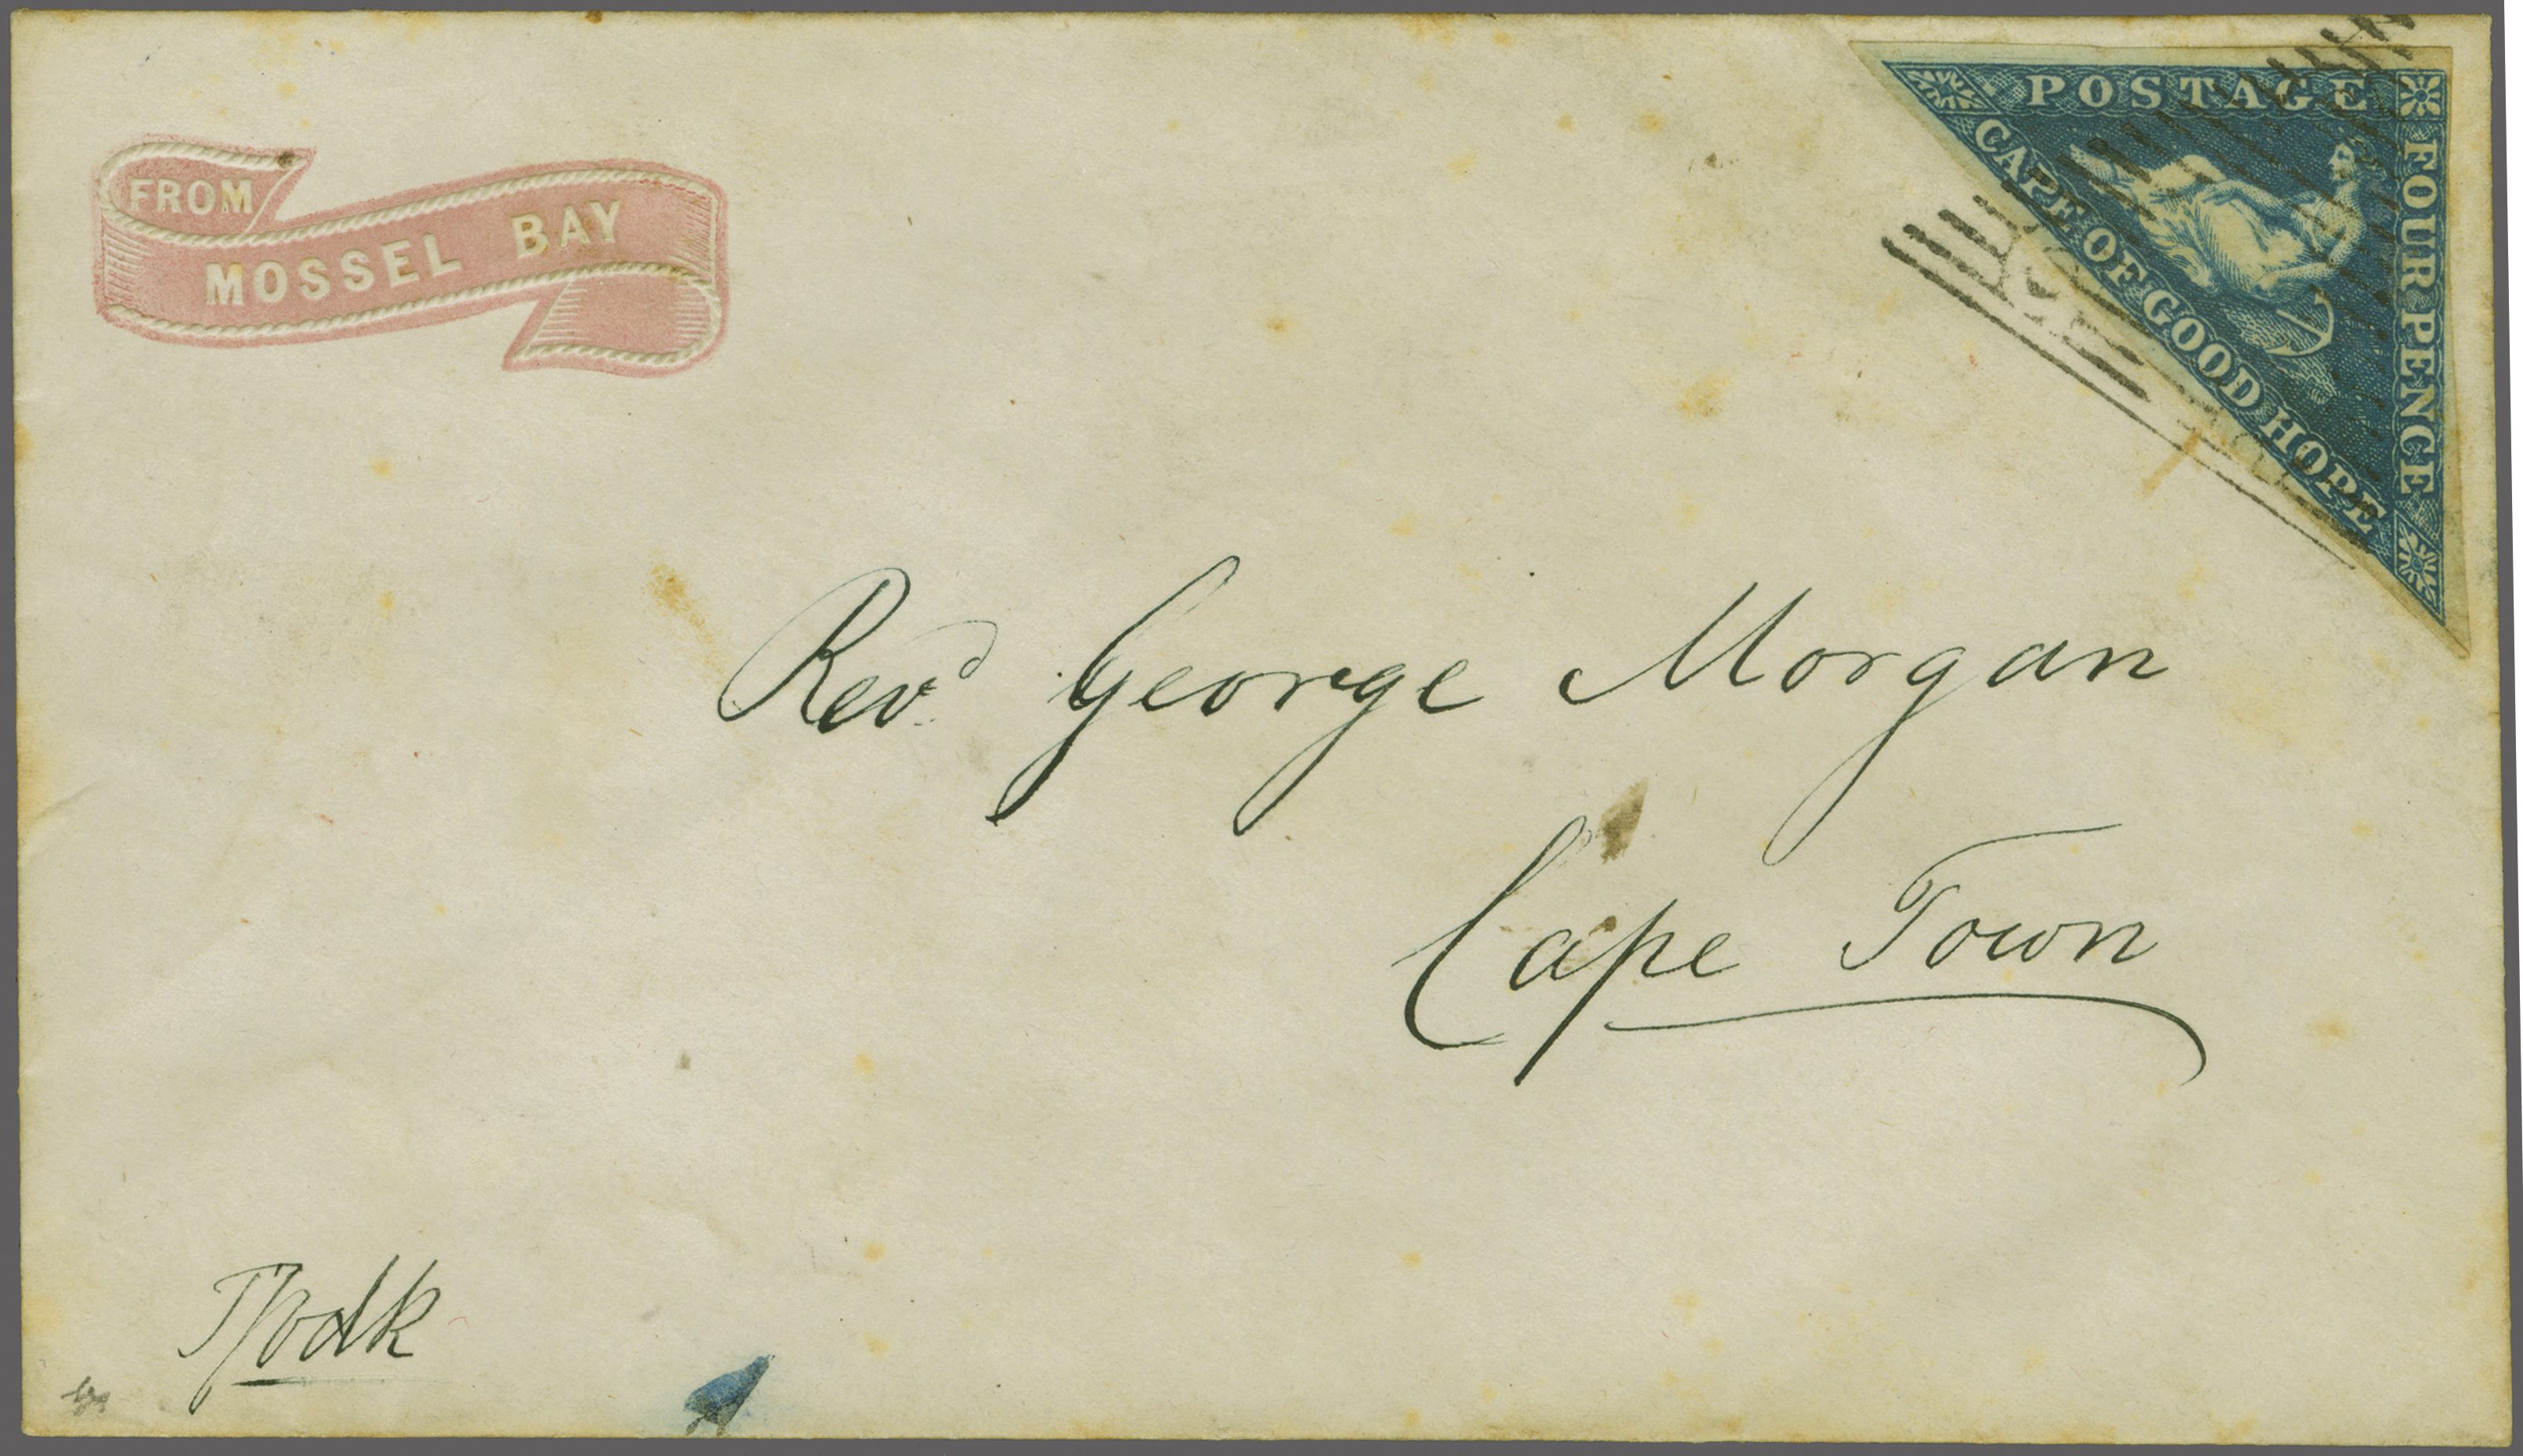 FROM
MOSSEL BAY
POSTAGE
FOUR PENCE
CAPE OF GOOD HOPE
Revd George Morgan
Cape Town